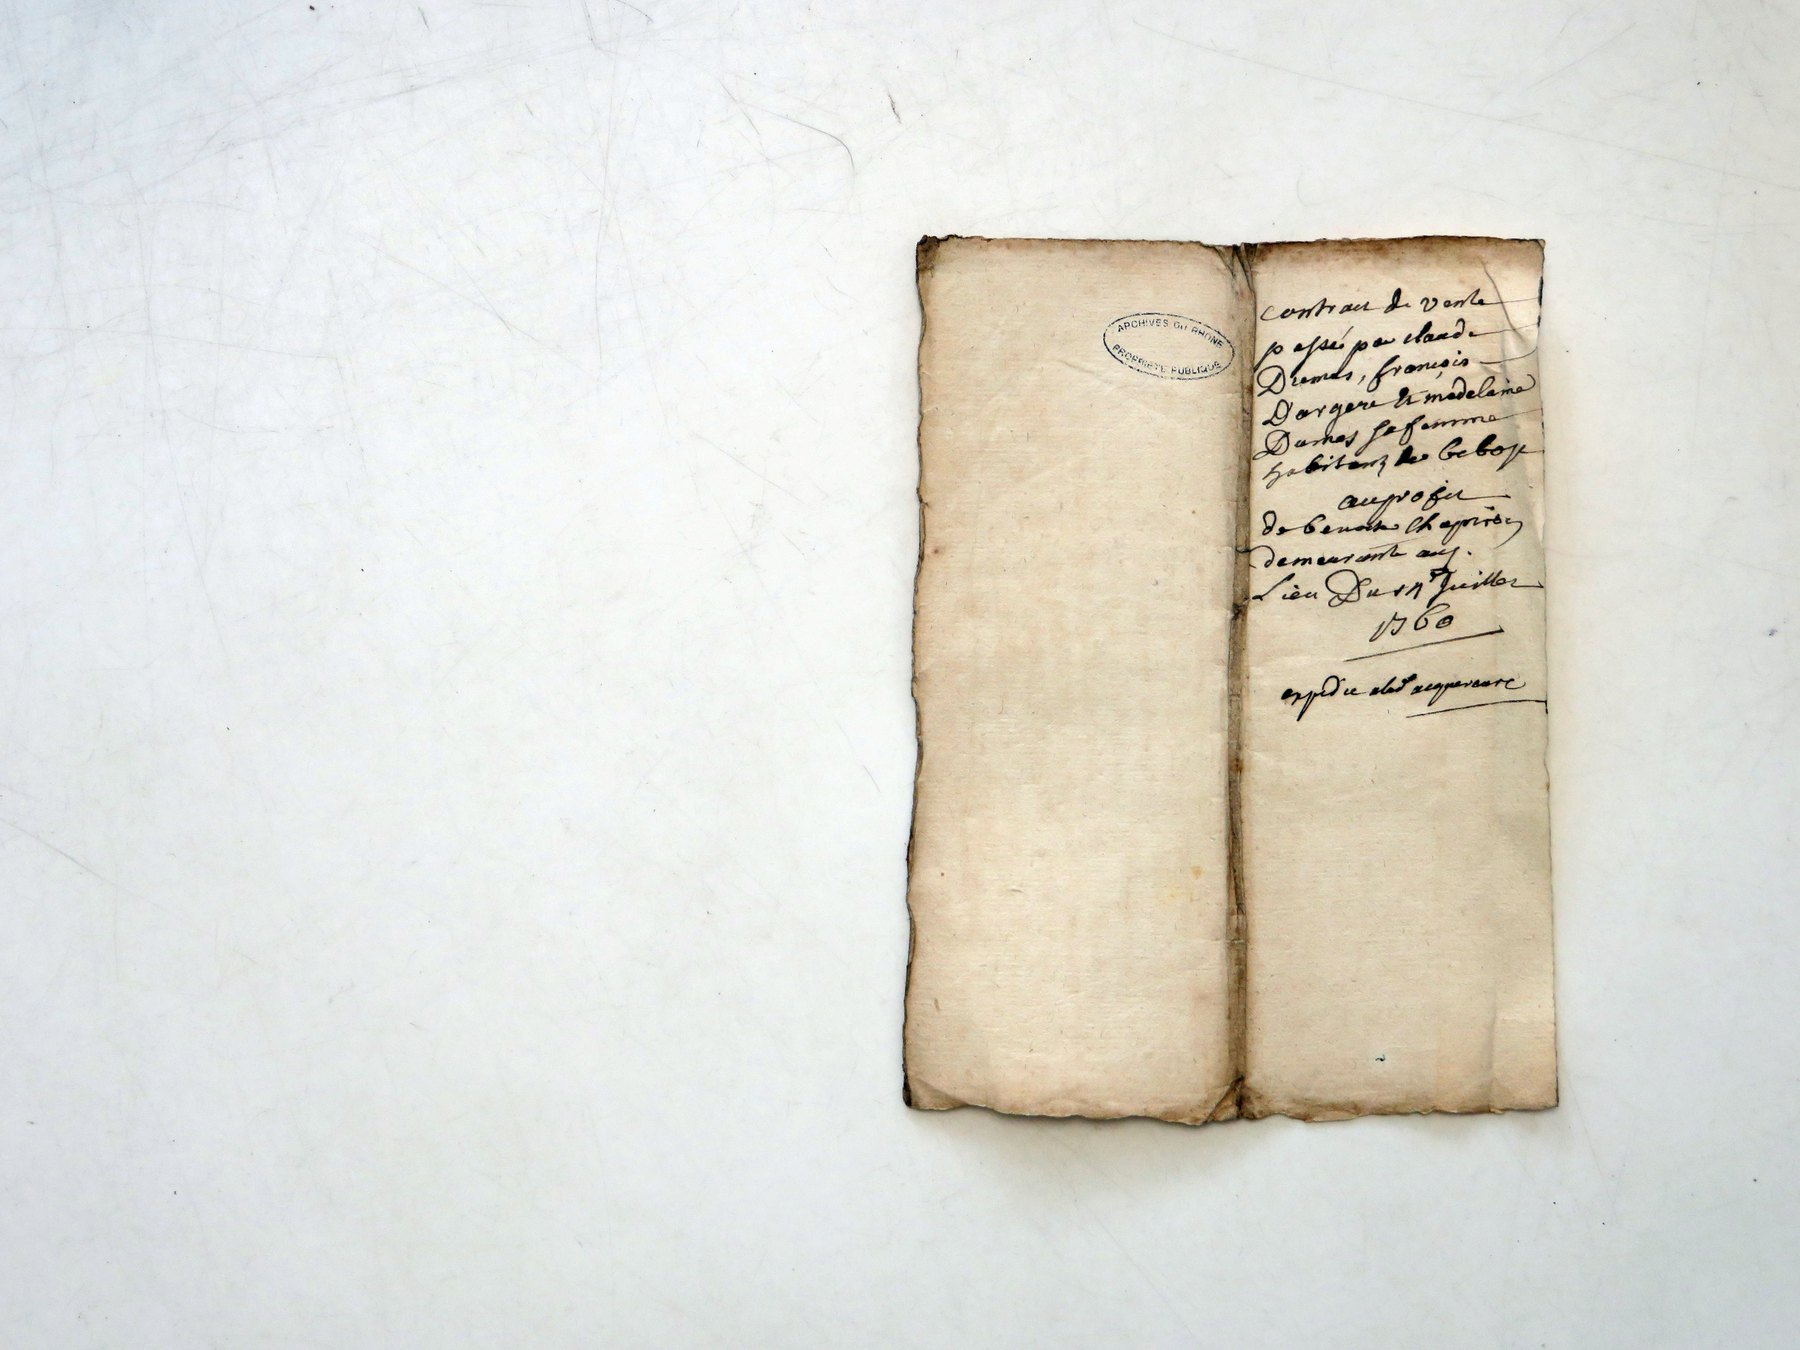 ARCHIVES DU RHONE
PROPRIÉTÉ PUBLIQUE
contract de vente
passé par claude
Dumas, françois
Dargere et médelaine
Dumas sa femme
habitans de
au profit
de benoite Chapiron
demeurante aud.
Lieu Du juillet
1760
expedié alad acquereure